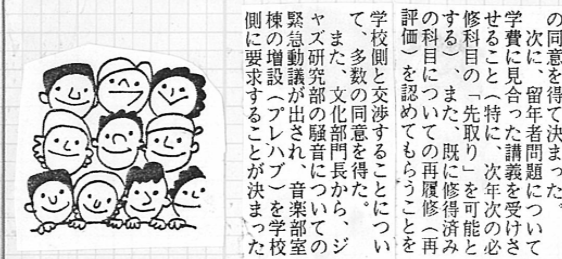 の同意を得て決まった。
次に、留年者問題について
学費に見合った講義を受けさ
せること（特に、次年次の必
修科目の「先取り」を可能と
する）、また、既に修得済み
の科目についての再履修（再
評価）を認めてもらうことを
学校側と交渉することについ
て、多数の同意を得た。
また、文化部門長から、ジ
ャズ研究部の騒音についての
緊急動議が出され、音楽部室
棟の増設（プレハブ）を学校
側に要求することが決まった